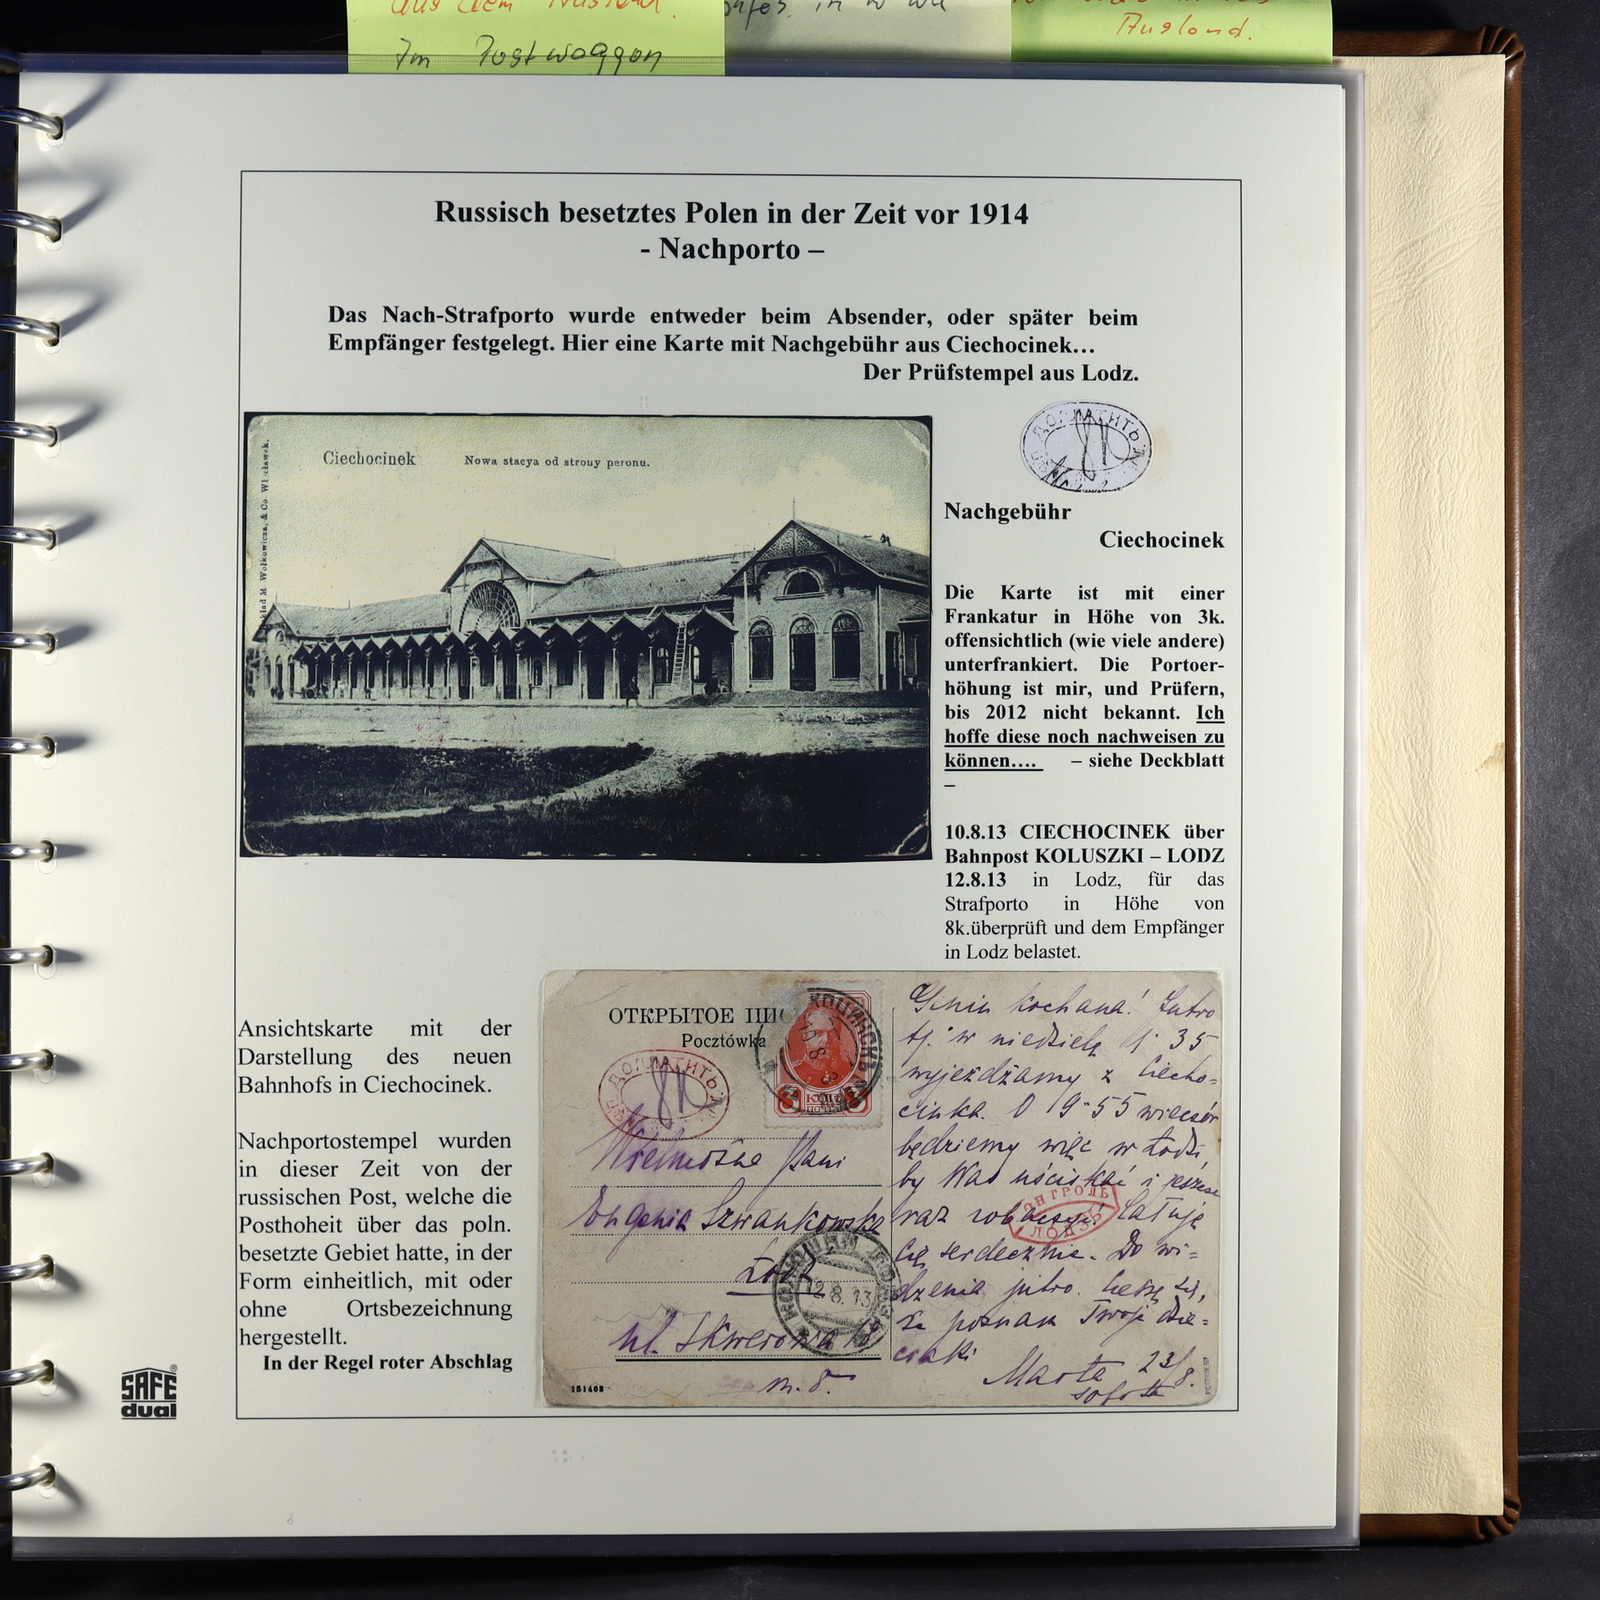 aus dem Ausland.
Im Postwaggon
in
Ausland.
Russisch besetztes Polen in der Zeit vor 1914
- Nachporto –
Das Nach-Strafporto wurde entweder beim Absender, oder später beim
Empfänger festgelegt. Hier eine Karte mit Nachgebühr aus Ciechocinek…
Der Prüfstempel aus Lodz.
Ciechocinek
Nowa stacya od strony peronu.
ДОПЛАТИТЬ
Nachgebühr
Ciechocinek
Die Karte ist mit einer
Frankatur in Höhe von 3k.
offensichtlich (wie viele andere)
unterfrankiert. Die Portoer-
höhung ist mir, und Prüfern,
bis 2012 nicht bekannt. Ich
hoffe diese noch nachweisen zu
können…. – siehe Deckblatt
–
10.8.13 CIECHOCINEK über
Bahnpost KOLUSZKI – LODZ
12.8.13 in Lodz, für das
Strafporto in Höhe von
8k.überprüft und dem Empfänger
in Lodz belastet.
Ansichtskarte mit der
Darstellung des neuen
Bahnhofs in Ciechocinek.
Nachportostempel wurden
in dieser Zeit von der
russischen Post, welche die
Posthoheit über das poln.
besetzte Gebiet hatte, in der
Form einheitlich, mit oder
ohne Ortsbezeichnung
hergestellt.
In der Regel roter Abschlag
SAFE
dual
ОТКРЫТОЕ
Pocztówka
ДОПЛАТИТЬ
8к
Wielmożna Pani
Eugenia Szwankowska
Łódź
12.8.13
ul. Skwerowa
m. 8.
151408
kochana! Jutro
tj. w niedzielę 35
wyjeżdżamy z Ciecho=
cinka. O 9-55 wieczór
będziemy więc w Łodzi
by Was uściskać i jeszcze
raz Całuję
КОНТРОЛЬ
ЛОДЗЬ
Cię serdecznie. Do wi=
dzenia jutro.
poznań Twoje dzie=
ciaki
Marta 23/8.
sobota